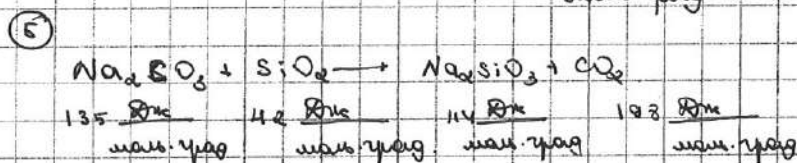 5
Na₂CO₃ + SiO₂ → Na₂SiO₃ + CO₂
135 Дж/моль·град 42 Дж/моль·град 114 Дж/моль·град Дж/моль·град